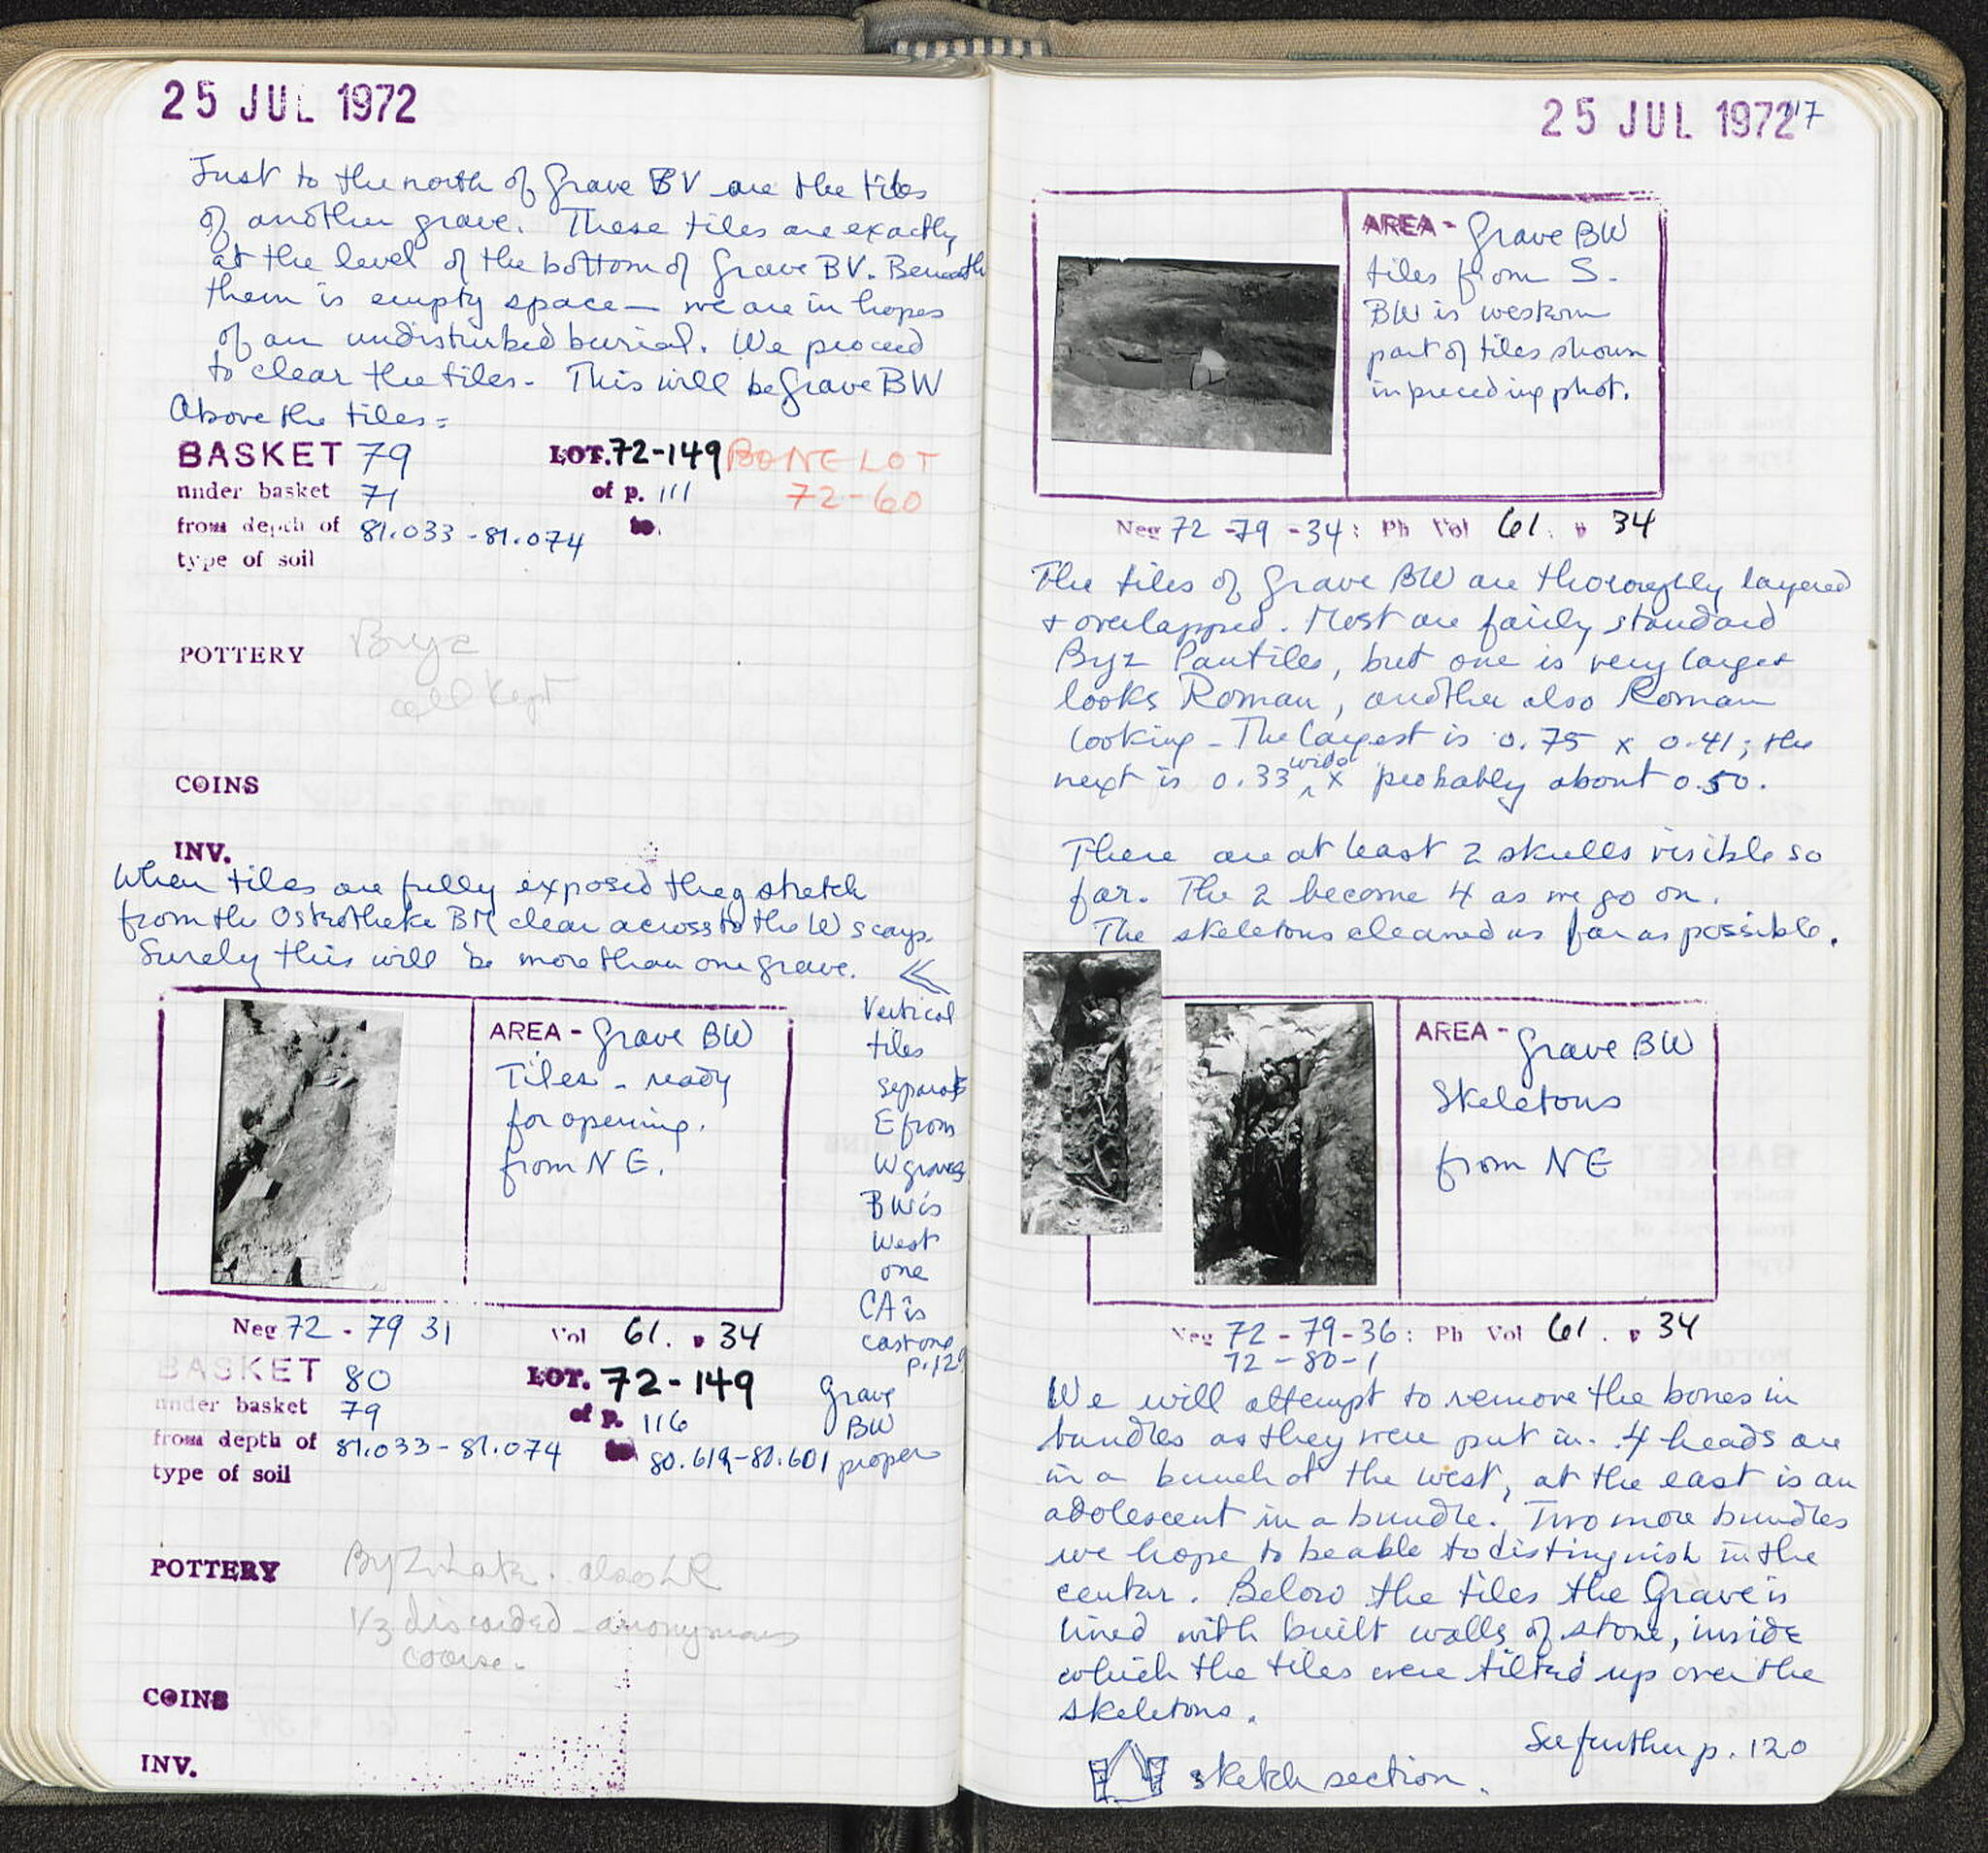 25 JUL 1972
Just to the north of Grave BV are the tiles
of another grave. These tiles are exactly
at the level of the bottom of Grave BV. Beneath
them is empty space — we are in hopes
of an undisturbed burial. We proceed
to clear the tiles - This will be Grave BW
Above the tiles =
BASKET 79 LOT. 72-149 BONE LOT
under basket 71 of p. 111 72-60
from depth of 81.033 - 81.074 to
type of soil
POTTERY Byz
all kept
COINS
INV.
When tiles are fully exposed they stretch
from the Osteotheke BM clear across to the W scarp.
Surely this will be more than one grave.
Vertical
tiles
separate
E from
W graves
BW is
West
one
CA is
east one
p. 129
AREA - Grave BW
Tiles - ready
for opening.
from NE.
Neg 72 - 79 31 Vol 61. p 34
BASKET 80 LOT. 72-149 Grave
under basket 79 of p. 116 BW
from depth of 81.033 - 81.074 to 80.619-80.601 proper
type of soil
POTTERY Byz. also LR
1/3 discarded - anonymous
coarse.
COINS
INV.
25 JUL 1972 117
AREA - Grave BW
tiles from S.
BW is western
part of tiles shown
in preceding phot.
Neg 72 -79 -34: Ph Vol 61. p 34
The tiles of Grave BW are thoroughly layered
+ overlapped. Most are fairly standard
Byz Pantiles, but one is very large +
looks Roman, another also Roman
looking - The largest is 0.75 x 0.41; the
next is 0.33 wide x probably about 0.50.
There are at least 2 skulls visible so
far. The 2 become 4 as we go on.
The skeletons cleaned as far as possible.
AREA - Grave BW
Skeletons
from NE
Neg 72-79-36: Ph Vol 61. p 34
72-80-1
We will attempt to remove the bones in
bundles as they were put in. 4 heads are
in a bunch at the west, at the east is an
adolescent in a bundle. Two more bundles
we hope to be able to distinguish in the
center. Below the tiles the Grave is
lined with built walls of stone, inside
which the tiles were tilted up over the
skeletons.
See further p. 120
sketch section.